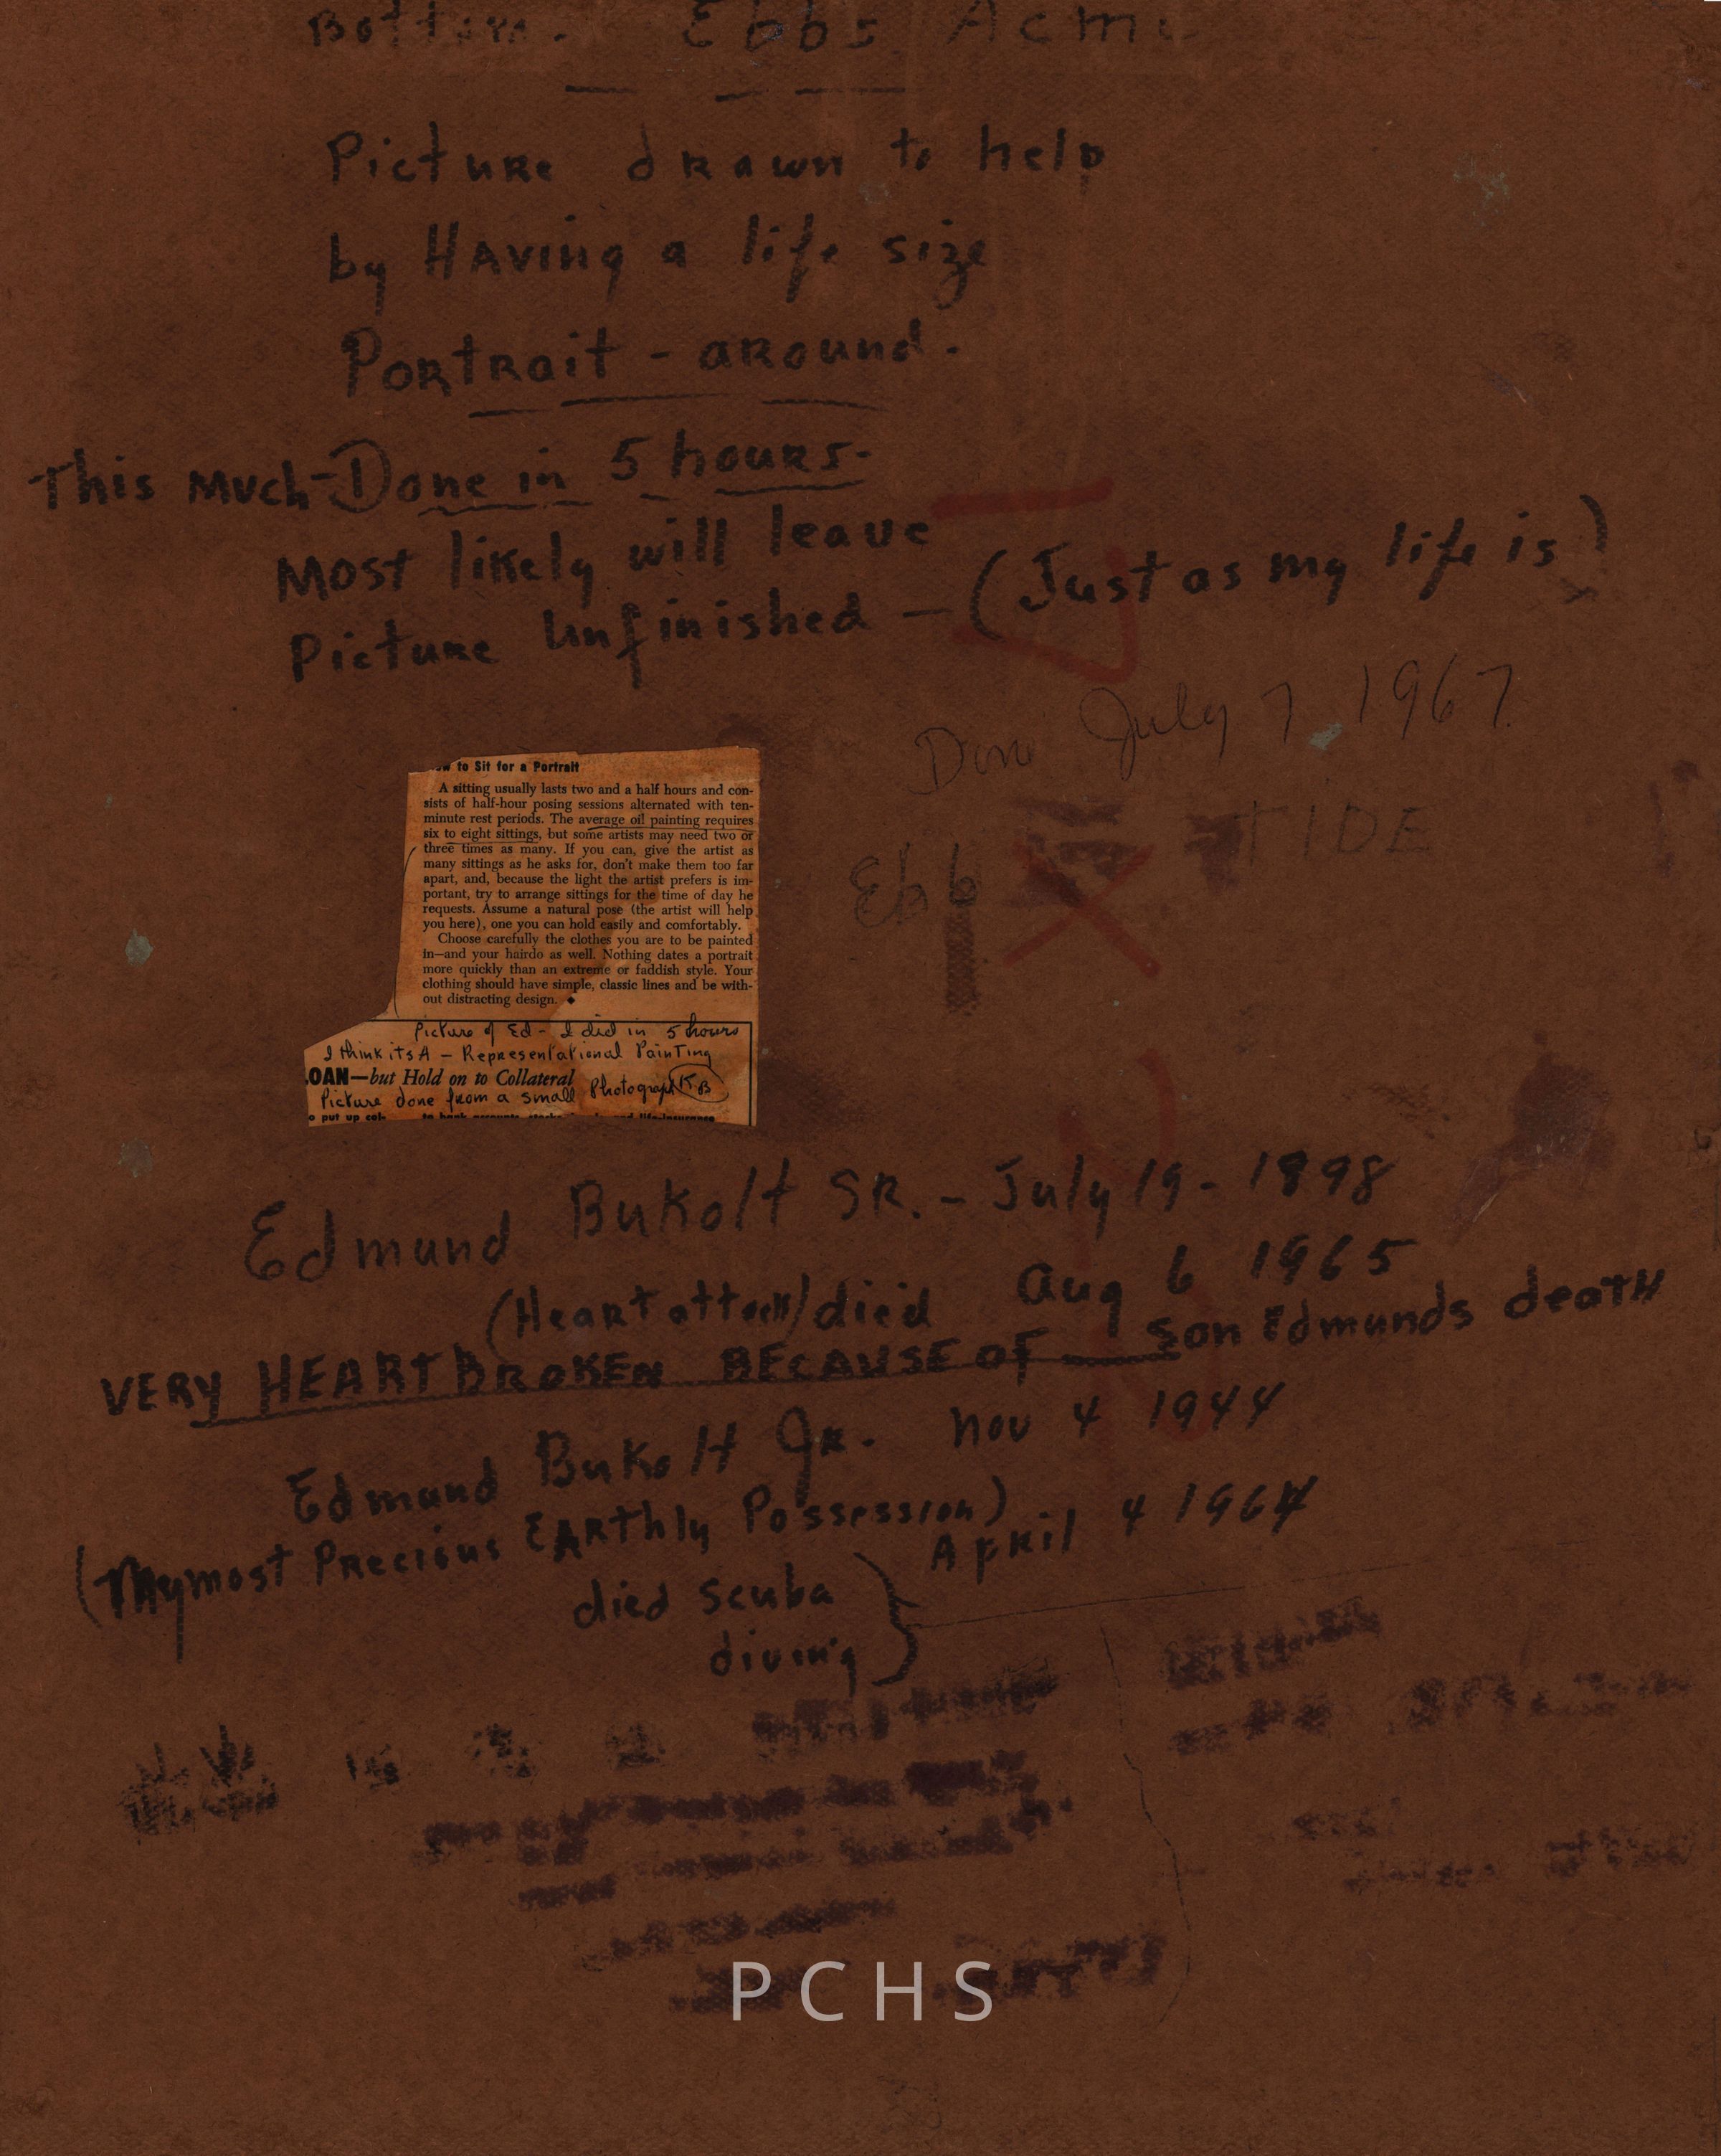 Bottom. Ebbs Acme
Picture drawn to help
by Having a life size
Portrait - around.
This Much - Done in 5 hours -
Most likely will leave
Picture Unfinished — (Just as my life is)
Done July 7 1967
TIDE
Ebb
to Sit for a Portrait
A sitting usually lasts two and a half hours and con-
sists of half-hour posing sessions alternated with ten-
minute rest periods. The average oil painting requires
six to eight sittings, but some artists may need two or
three times as many. If you can, give the artist as
many sittings as he asks for, don't make them too far
apart, and, because the light the artist prefers is im-
portant, try to arrange sittings for the time of day he
requests. Assume a natural pose (the artist will help
you here), one you can hold easily and comfortably.
Choose carefully the clothes you are to be painted
in—and your hairdo as well. Nothing dates a portrait
more quickly than an extreme or faddish style. Your
clothing should have simple, classic lines and be with-
out distracting design. ◆
Picture of Ed - I did in 5 hours
I think its A - Representational Painting
OAN—but Hold on to Collateral
Picture done from a small Photograph KB
o put up col- to bank accounts, and life-insurance
Edmund Bukolt SR. - July 19 - 1898
(Heart attack) died Aug 6 1965
VERY HEARTBROKEN BECAUSE OF son Edmunds death
Edmund Bukolt Jr. Nov 4 1944
(My most Precious Earthly Possession) April 4 1964
died scuba
diving
PCHS